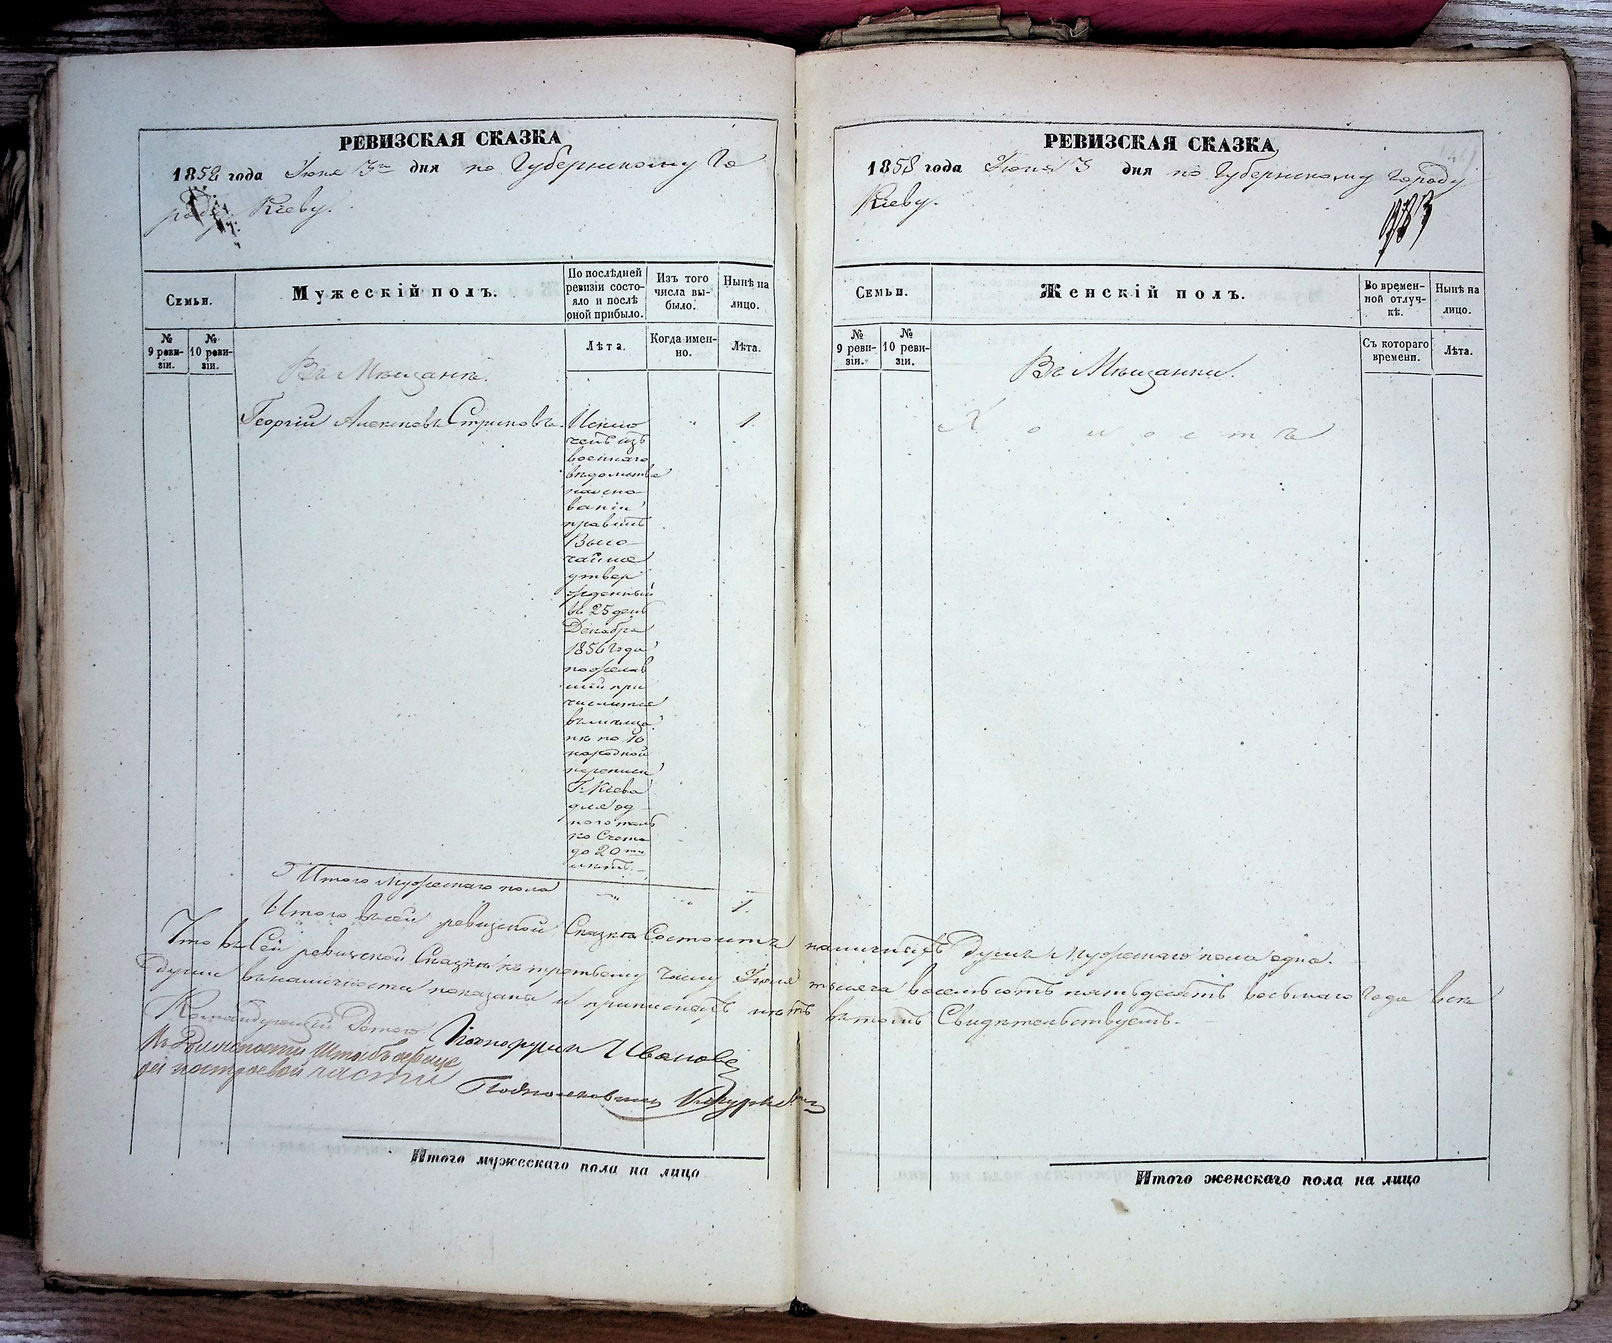 РЕВИЗСКАЯ СКАЗКА
1858 года Іюня 3го дня по Губернскому Го
роду Кіеву.
Семьи.
Мужескій полъ.
По послѣдней ревизіи состояло и послѣ оной прибыло.
Изъ того числа выбыло.
Нынѣ на лицо.
№ 9 ревизіи.
№ 10 ревизіи.
Лѣта.
Когда именно.
Лѣта.
Въ Мѣщане.
Георгій Алексѣевъ
1.
Исклю
ченъ изъ
военнаго
вѣдомства
на осно
ваніи
правилъ
Высо
чайше
утвер
жденныхъ
въ 25 день
Декабря
1856 года
пожелав
шій при
числится
въ мѣща
не по 10
народной
переписи
Г. Кіева
для од
ного толь
ко счета
до 20ти
лѣтъ.
Итого мужескаго пола 1.
Итого въ сей ревизской Сказкѣ Состоитъ наличныхъ Душъ Мужескаго пола одна.
Что въ Сей ревизской Сказкѣ къ третьему числу Іюня тысяча восемьсотъ пятьдесятъ восьмаго Года всѣ
души въ наличности показаны и прописныхъ нѣтъ въ томъ Свидѣтельствуемъ.
Командующій Ротою
Ивановъ
въ Должности Штабъ офицера
нестроевой части
Подполковникъ
Итого мужескаго пола на лицо
РЕВИЗСКАЯ СКАЗКА
1858 года Іюня 3 дня по Губернскому Городу
Кіеву.
Семьи.
Женскій полъ.
Во временной отлучкѣ.
Нынѣ на лицо.
№ 9 ревизіи.
№ 10 ревизіи.
Съ котораго времени.
Лѣта.
Въ Мѣщанки.
Холостъ
Итого женскаго пола на лицо